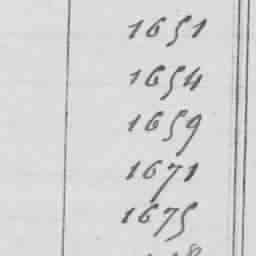 1651
1654
1659
1671
1675